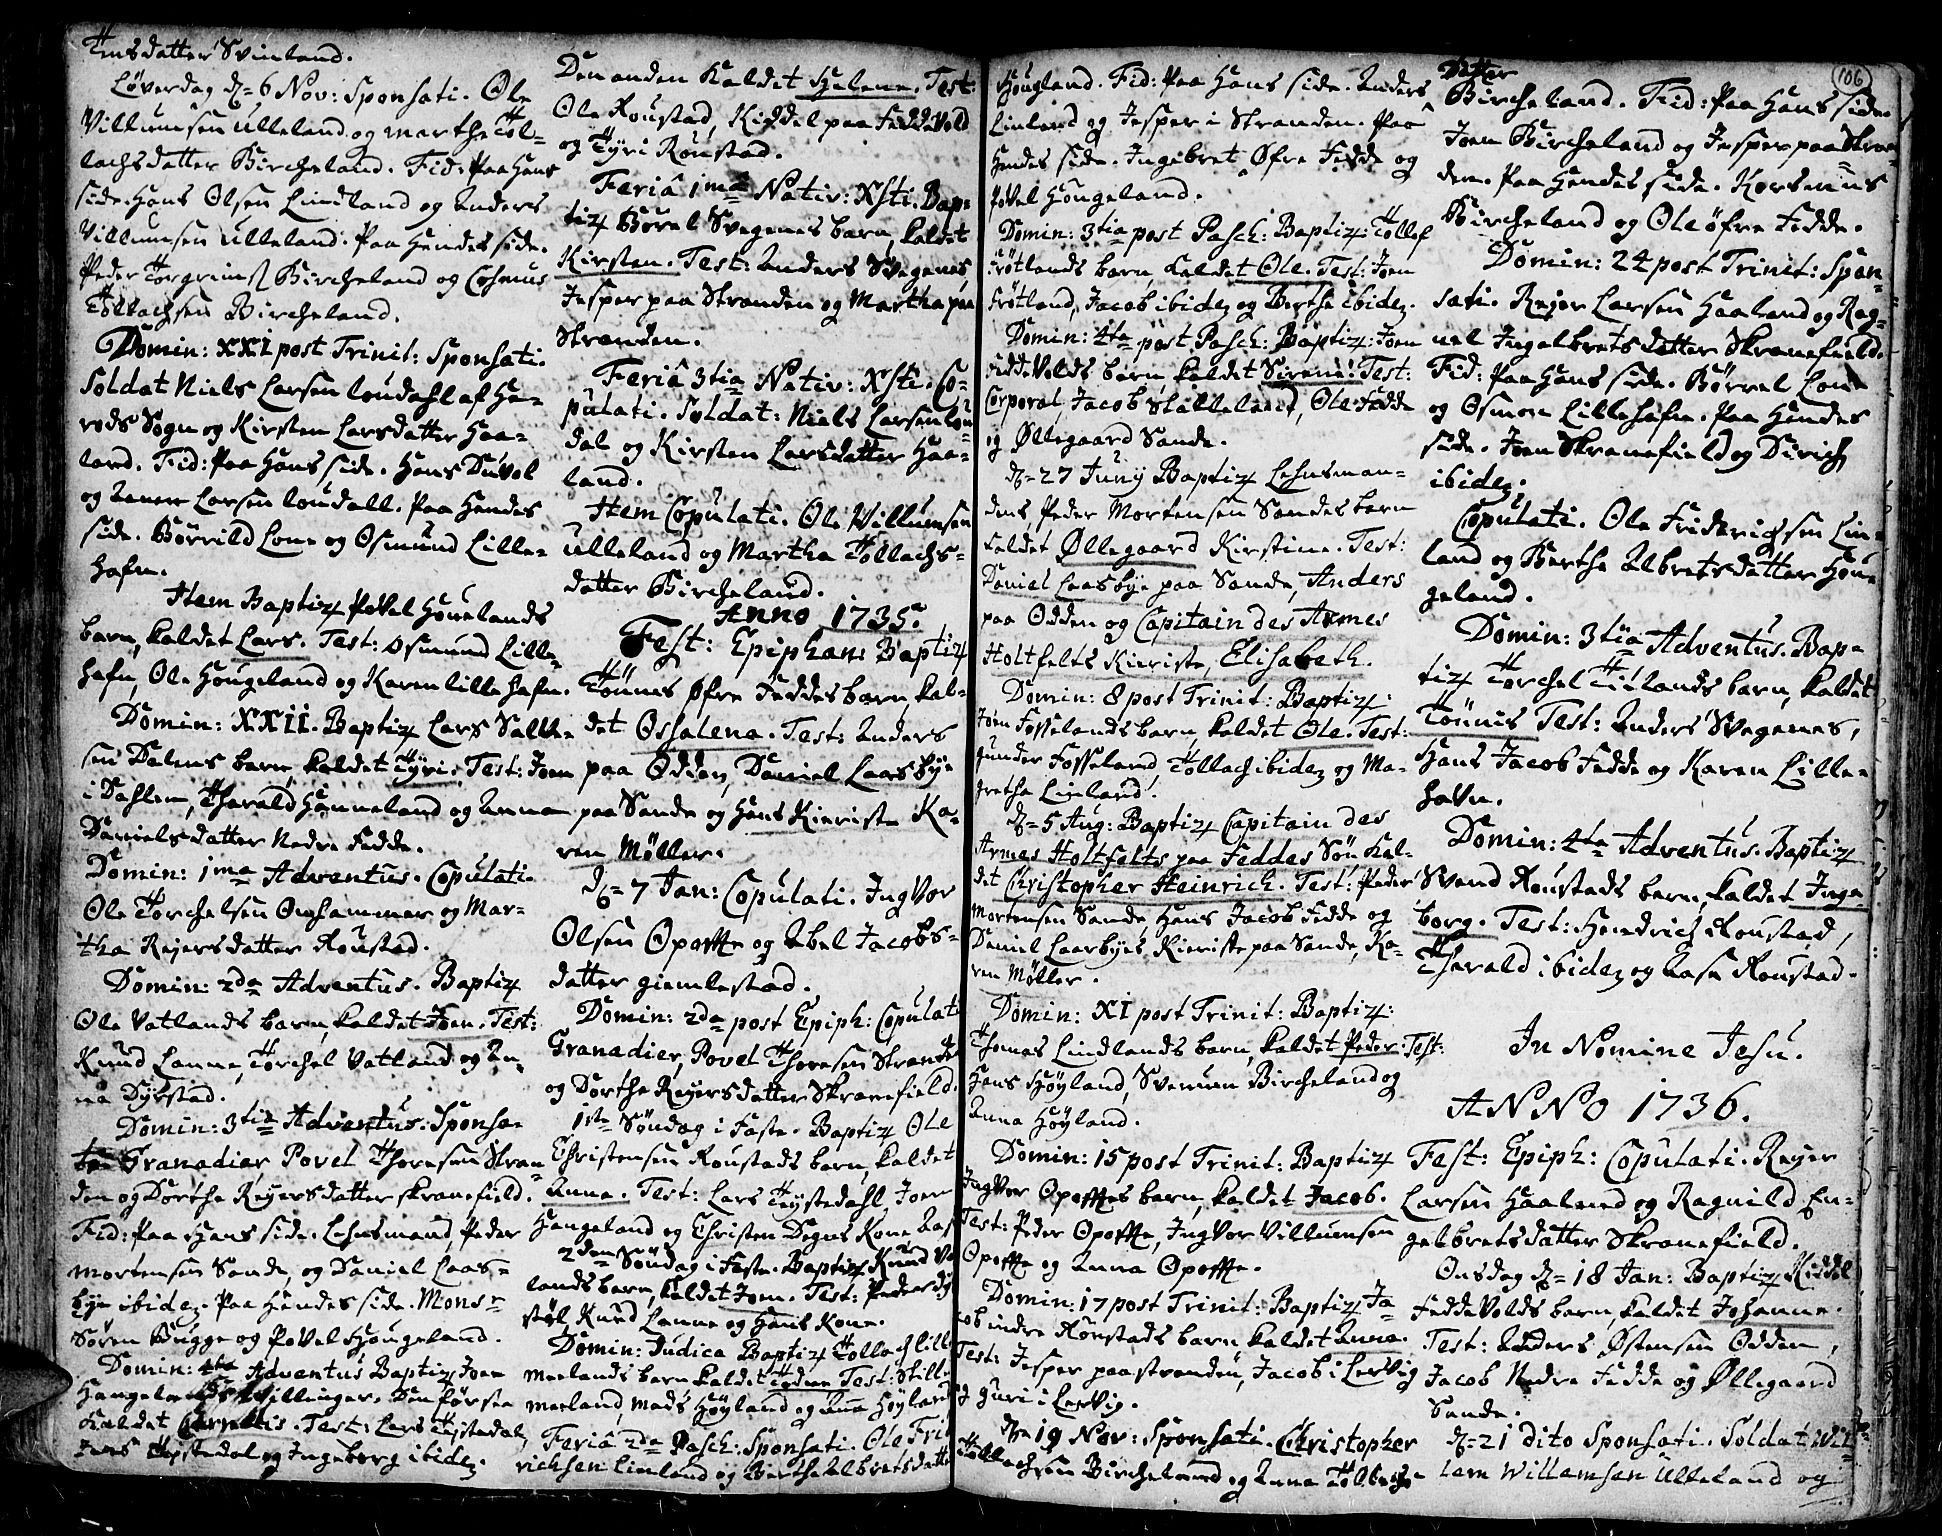 Tensdatter Svinland.
Löverdag d= 6 Nov: Sponsati. Ole
Villumsen Ulleland og Marthe Tol-
lachsdatter Bircheland. Fid: Paa Hans
side. Hans Olsen Lindland og Anders
Villumsen Ulleland. Paa Hendes side.
Peder Torgrims Bircheland og Cosmus
Tollachsen Bircheland.
Domin: XXI post Trinit: Sponsati.
Soldat Niels Larsen Loudahl af He-
rods Sogn og Kirsten Larsdatter Haa-
land. Fid: Paa Hans side. Hans Duvol
og Larsen Loudall. Paa Hendes
side. Börrild Lone og Osmund Lille-
hafn.
Item Baptiz Povel Houelands
barn, kaldet Lars. Test: Osmund Lille-
hafn, Ole Hougeland og Karen Lillehafn.
Domin: XXII. Baptiz Lars
sen Dalens barn kaldet Tÿri. Test: Joen
i Dahlen, Tharald Hanneland og Anna
Danielsdatter Nedre Fedde.
Domin: 1ma Adventus. Copulati.
Ole Torchelsen Omhammer og Mar-
tha Rejersdatter Roustad.
Domin: 2da Adventus. Baptiz
Ole Vatlands barn, kaldet Joen. Test:
Knud Lanne, Torchel Vatland og An-
na Dÿrstad.
Domin: 3tia Adventus. Sponsa-
ti Granadier Povel Thoresen Stran-
den og Dorthe Reÿersdatter Skranefield.
Fid: Paa Hans side. Lehnsmand, Peder
Mortensen Sande, og Daniel Laas-
bÿe ibidez. Paa Hendes side. Monsr
Sören Bugge og Povel Hougeland.
Domin: 4ta Adventus Baptiz Joen
Hangelands Tvillinger. Den förste
kaldet. Test: Lars Tÿstedal,
Tÿstedal og Ingeborg ibidez.
Den anden Kaldet Helene. Test:
Ole Roustad, Kiddel paa Feddevold
og Tÿri Roustad.
Feriâ 1mâ Nativ: Xsti. Bap-
tiz Börrel Svegenes barn, kaldet
Kirsten. Test: Anders Svegenes,
Jesper paa Stranden og Martha paa
Stranden.
Feriâ 3tia Nativ: Xsti. Co-
pulati. Soldat: Niels Larsen Lou-
dal og Kirsten Larsdatter Haa-
land.
Item Copulati. Ole Villumsen
Ulleland og Martha Tollachs-
datter Bircheland.
Anno 1735.
Fest: Epiphan: Baptiz
Tönnes Øfre Feddes barn, kal-
det Ossalena. Test: Anders
paa Odden, Daniel Laasbÿe
paa Sande og Hans Kieriste Ka-
ren Møller.
d= 7 Jan: Copulati. Ingvor
Olsen Opofte og Abel Jacobs-
datter Giemlestad.
Domin: 2da post Epiph: Copulati
Granadier, Povel Thoresen Stranden
og Dorthe Reÿersdatter Skranefield.
1ste Söndag i Faste. Baptiz Ole
Christensen Roustads barn, kaldet
Anna. Test: Lars Tÿstedahl, Joen
Hangeland og Christen Degns Kone
2den Söndag i Faste. Baptiz Knud
lands barn, kaldet Joen. Test: Peder
Knud Lanne og Hans Kone.
Domin: Judica Baptiz Tollach Lille
meelands barn kaldet Test:
meeland, Mads Høÿland og Høÿland
Feriâ 2da Pasch: Sponsati. Ole Fri
richsen Linland og Berthe Albretsdatter
Hougland. Fid: Paa Hans side. Anders
Linland og Jesper i Stranden. Paa
Hendes side. Ingebret Øfre Fedde og
Povel Hougeland.
Domin: 3tia post Pasch: Baptiz: Tollef
Frötlands barn, kaldet Ole. Test: Joen
Frötland, Jacob ibidez og Berthe ibidez.
Domin: 4ta post Pasch: Baptiz: Joen
Feddevolds barn, kaldet Sirene. Test:
Corporal Jacob Stalleland, Ole Fedde
og Øllegaard Sande.
d= 27 Junij Baptiz Lehnsman-
dens, Peder Mortensen Sandes barn
kaldet Øllegaard Kirstine. Test:
Daniel Laasbÿe paa Sande, Anders
paa Odden og Capitain des Armes
Holtfelts Kieriste, Elisabeth.
Domin: 8 post Trinit: Baptiz:
Joen Fosselands barn, kaldet Ole. Test:
Gunder Fosseland, Tollach ibidez og Ma-
grethe Linland.
d= 5 Aug: Baptiz Capitain des
Armes Holtfelts paa Feddes Sön kal-
det Christopher Heinrich. Test: Peder
Mortensen Sande, Hans Jacob Fedde og
Daniel Laasbÿes Kieriste paa Sande, Ka-
ren Møller.
Domin: XI post Trinit: Baptiz:
Thomas Lindlands barn, kaldet Peder. Test:
Hans Høÿland, Svenum Bircheland og
Anna Høÿland.
Domin: 15 post Trinit: Baptiz
Ingvor Opoftes barn, kaldet Jacob.
Test: Peder Opofte, Ingvor Villumsen
Opofte og Anna Opofte.
Domin: 17 post Trinit: Baptiz Ja-
cob indre Roustads barn kaldet Anna.
Test: Jesper paa Stranden, Jacob i Lervig
og Guri i Lervig.
d= 19 Nov: Sponsati. Christopher
Tollachsen Bircheland og Anna Tolbergs-
106
Datter
Bircheland. Fid: Paa Hans side.
Joen Bircheland og Jesper paa Stran-
den. Paa Hendes side. Korsmus
Bircheland og Ole Øfre Fedde.
Domin: 24 post Trinit: Spon-
sati. Rejer Larsen Haaland og Rag-
nel Ingelbretsdatter Skranefield.
Fid: Paa Hans side. Børrel Lone
og Osmon Lillehafn. Paa Hendes
side. Joen Skranefield og Dirich
ibidez.
Copulati. Ole Friderichsen Lin-
land og Berthe Albretsdatter Hou-
geland.
Domin: 3tia Adventus. Bap-
tiz Torchel Titlands barn, kaldet
Tönnis Test: Anders Svegenes,
Hans Jacob Fedde og Karen Lille-
havn.
Domin: 4ta Adventus. Baptiz
Svend Roustads barn, kaldet Inge-
borg. Test: Hendrich Roustad,
Tharald ibidez og Aase Roustad.
In Nomine Jesu.
ANNO 1736.
Fest: Epiph: Copulati. Reyer
Larsen Haaland og Ragnild En-
gelbretsdatter Skranefield.
Onsdag d= 18 Jan: Baptiz Kiddel
Feddevolds barn, kaldet Johanne.
Test: Anders Østensen Odden,
Jacob Nedre Fedde og Øllegaard
Sande.
d= 21 dito Sponsati. Soldat Wil-
lem Willemsen Ulleland og